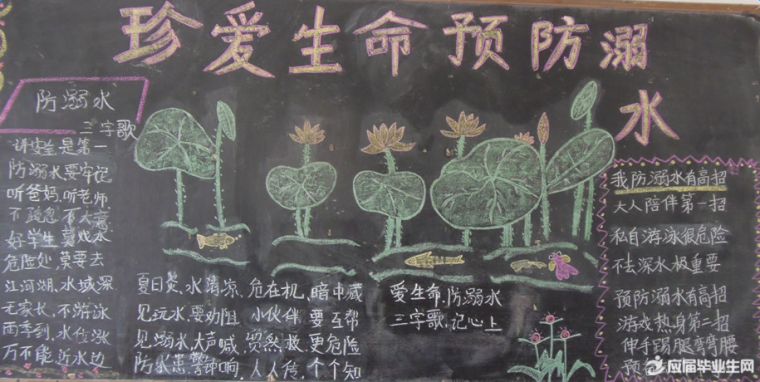 珍爱生命预防溺
水
防溺水
三字歌
讲安全是第一
防溺水要牢记
听爸妈,听老师
不 不大意
好学生莫戏水
危险处,莫要去
江河湖,水域深
无家长,不游泳
雨季到,水位涨
万不能近水边
夏日炎,水清凉,危在机,暗中藏
见玩水,要劝阻 小伙伴 要互帮
见溺水,大声喊,贸然救,更危险
防水患,警钟响,人人传,个个知
爱生命,防溺水
三字歌,记心上
我防溺水有高招
大人陪伴第一招
私自游泳很危险
不去深水极重要
预防溺水有高招
游戏热身第二招
伸手踢腿弯弯腰
预
应届毕业生网